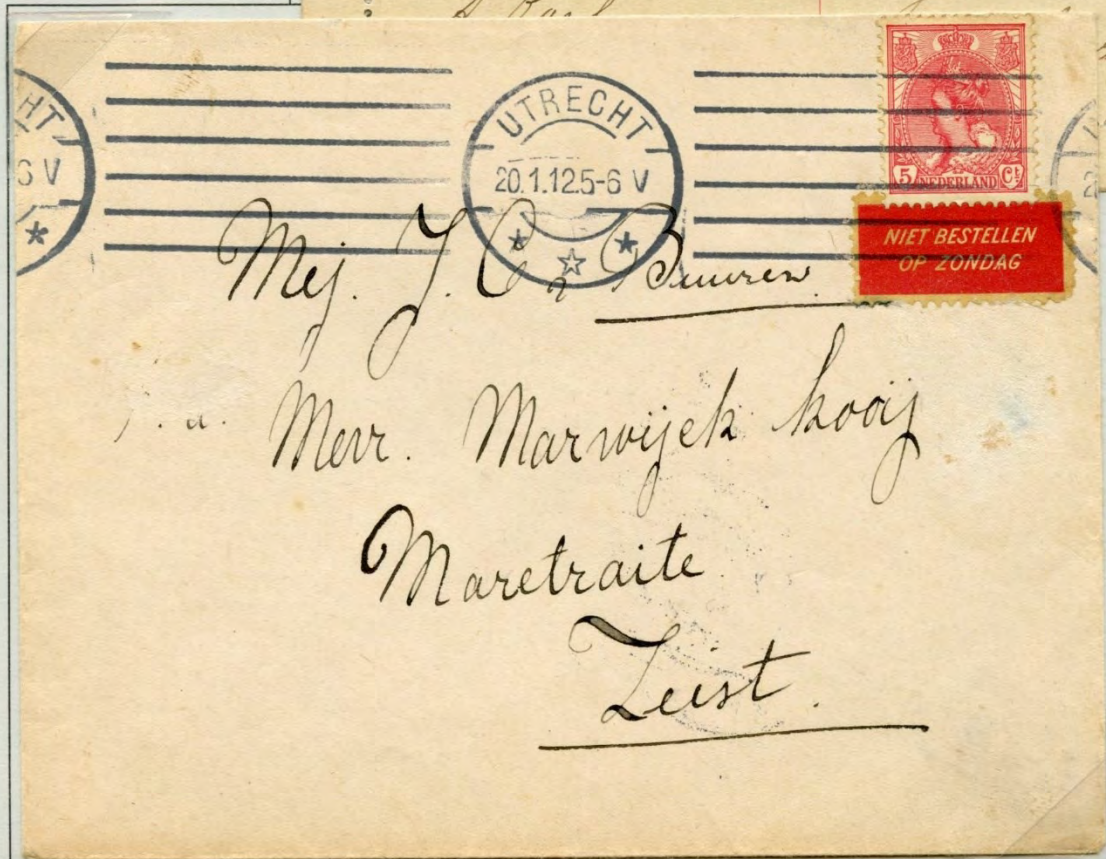 HT
6 V
UTRECHT
20.1.12.5-6 V
5 Ct
NEDERLAND
NIET BESTELLEN
OP ZONDAG
Mej. J. C. Buuren
Mevr. Marwijck kooij
Maretraite
Zeist.